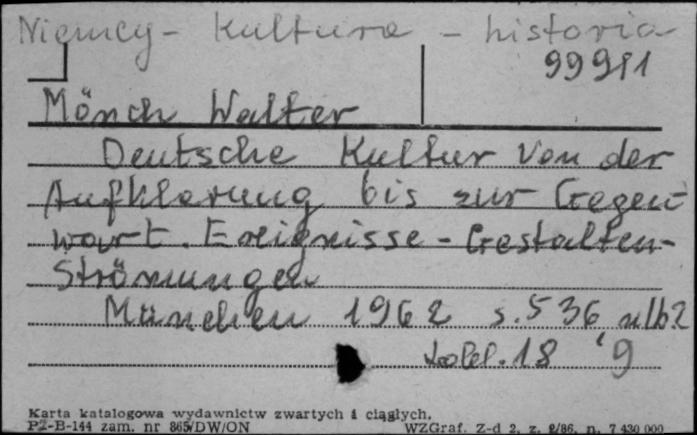 Niemcy - Kultura - historia
99911
Mönch Walter
Deutsche Kultur von der
Aufklärung bis zur Gegen-
wart. Ereignisse - Gestalten -
Strömungen
München 1962 s. 536 nlb 2
tabl. 18 '9
Karta katalogowa wydawnictw zwartych i ciągłych.
PZ-B-144 zam. nr 865/DW/ON
WZGraf. Z-d 2, z. 2/86, n. 7 430 000